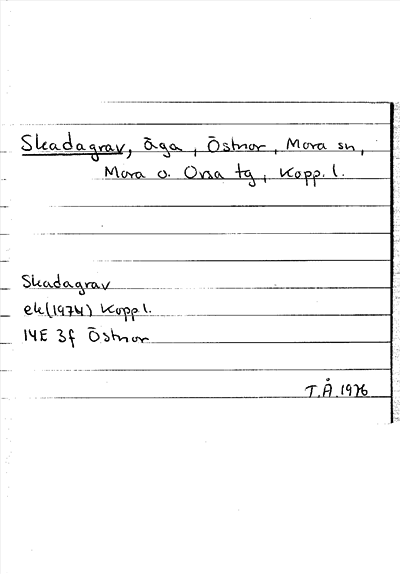 Skadagrav, äga, Östnor, Mora sn,
Mora o. Orsa tg, Kopp. l.
Skadagrav
ek(1974) Kopp l.
14E 3f Östnor
T.Å. 1976